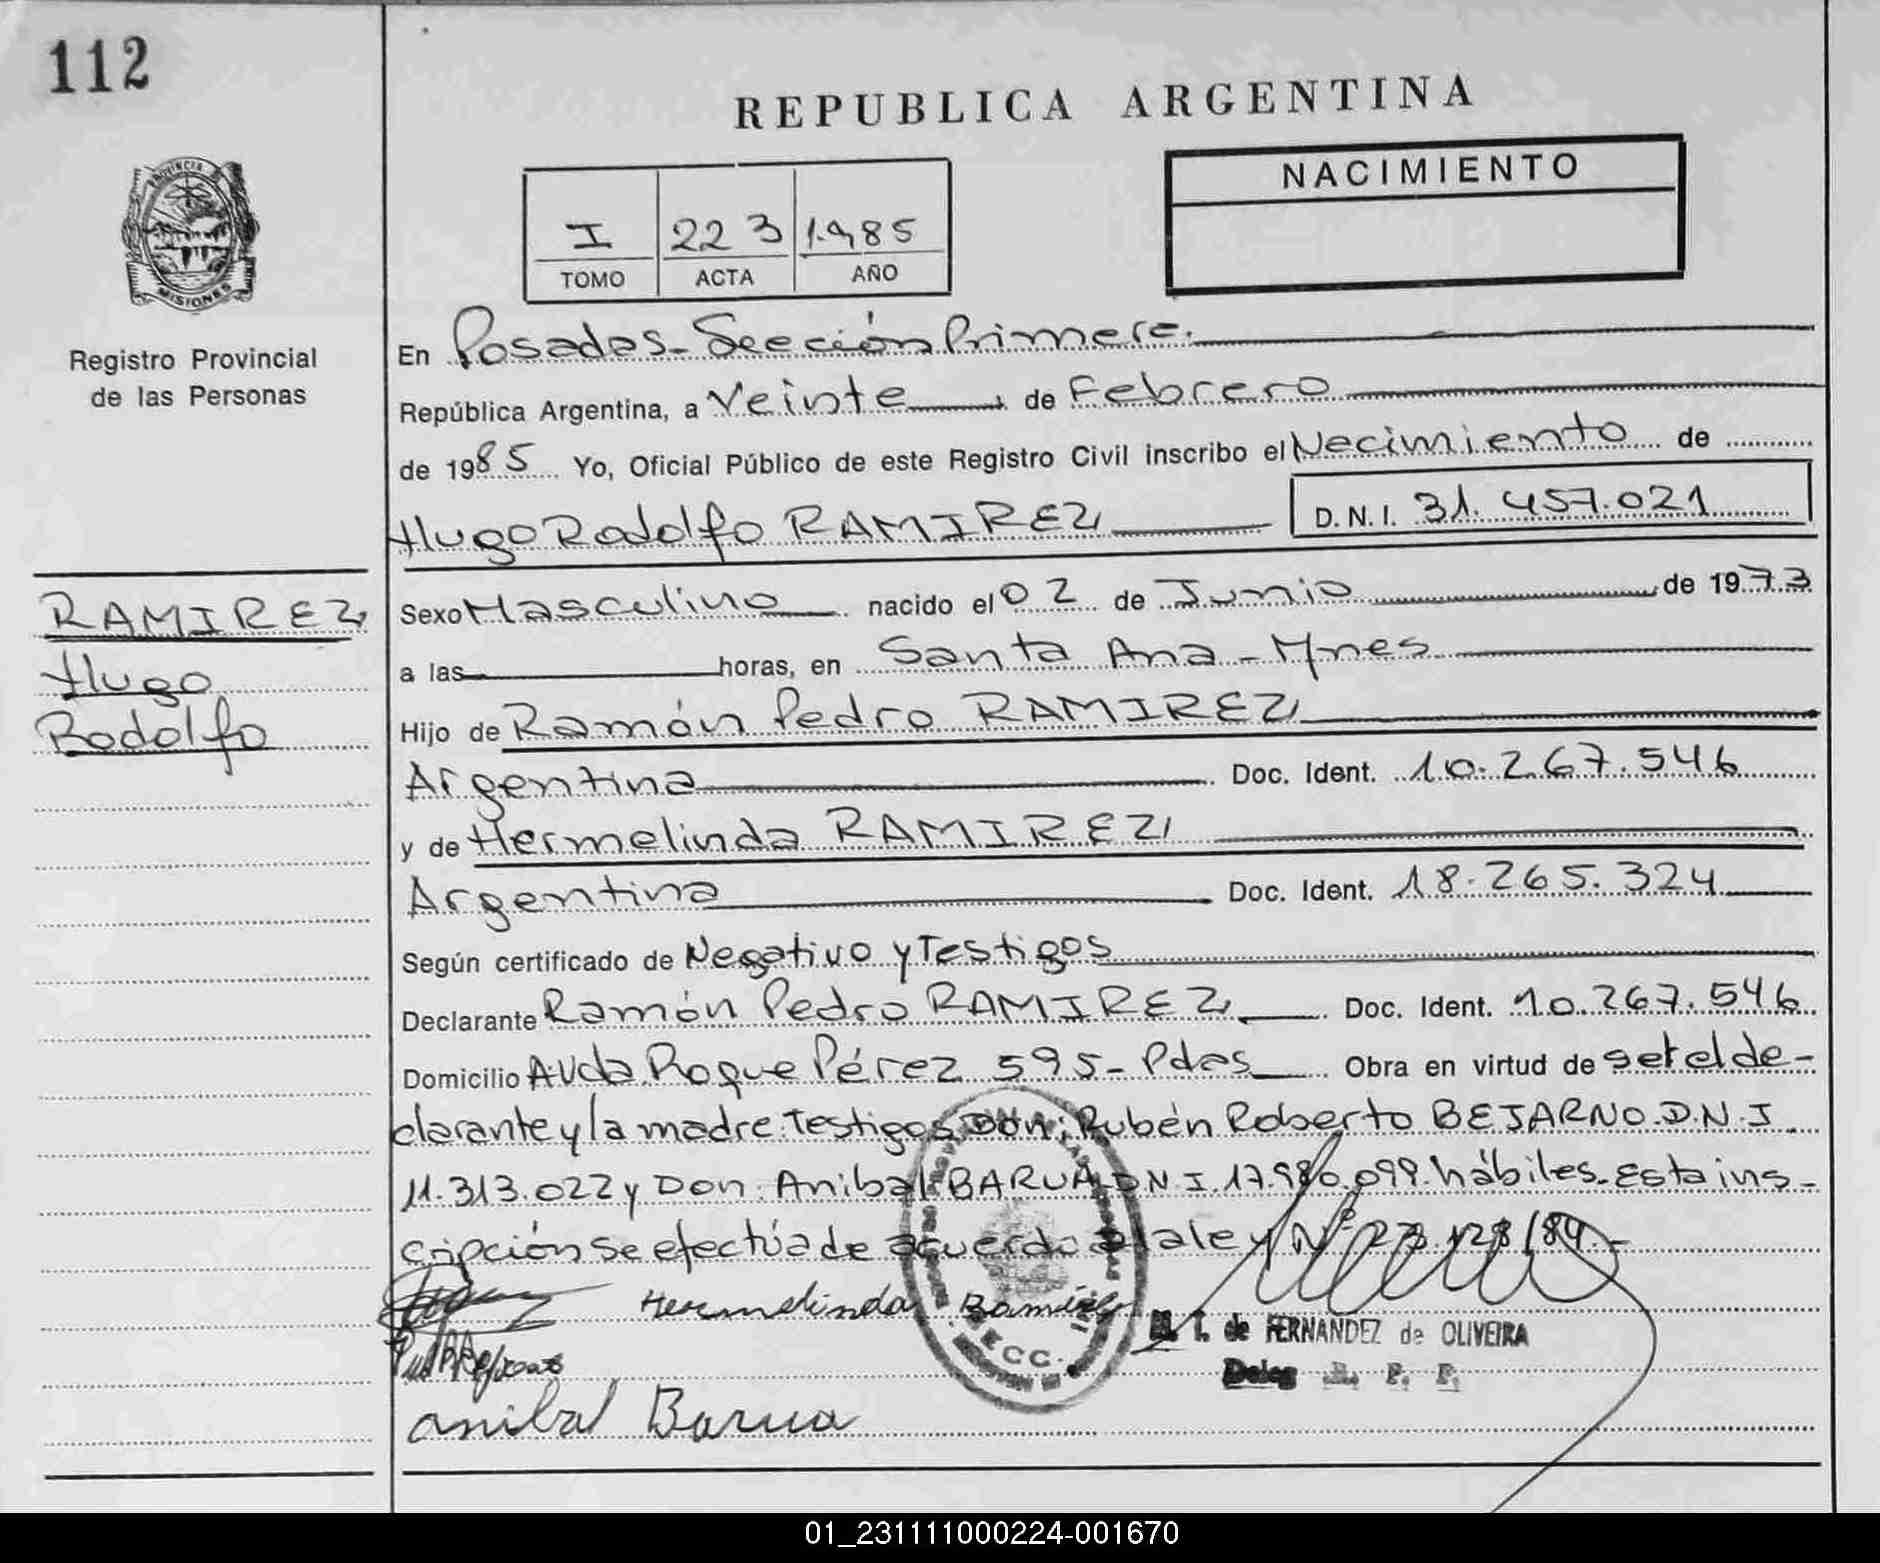 112
REPUBLICA ARGENTINA
PROVINCIA DE
MISIONES
Registro Provincial
de las Personas
NACIMIENTO
I 223 1.985
TOMO ACTA AÑO
En Posadas - Sección Primera.
República Argentina, a Veinte de Febrero
de 1985 Yo, Oficial Público de este Registro Civil inscribo el Nacimiento de
Hugo Rodolfo RAMIREZ D.N.I. 31.457.021
RAMIREZ
Hugo
Rodolfo
Sexo Masculino nacido el 02 de Junio de 1973
a las horas, en Santa Ana - Mnes
Hijo de Ramón Pedro RAMIREZ
Argentina Doc. Ident. 10.267.546
y de Hermelinda RAMIREZ
Argentina Doc. Ident. 18.265.324
Según certificado de Negativo y Testigos
Declarante Ramón Pedro RAMIREZ Doc. Ident. 10.267.546
Domicilio Avda. Roque Pérez 595 - Pdas Obra en virtud de ser el de-
clarante y la madre. Testigos Don: Rubén Roberto BEJARNO. D.N.I.
11.313.022 y Don: Anibal BARUA D.N.I. 17.980.099. hábiles. Esta ins-
cripción se efectúa de acuerdo a la ley Nº 23.128/84.-
Hermelinda Ramirez
M. T. de FERNANDEZ de OLIVEIRA
Deleg R. P. P.
anibal Barua
01_231111000224-001670